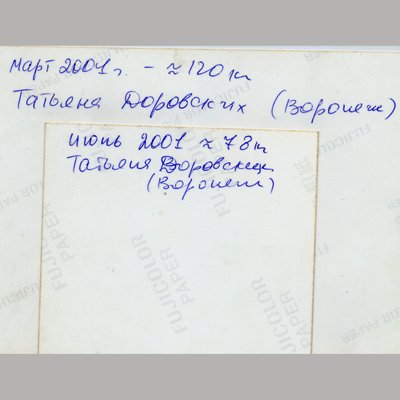 Март 2001 г. - ≈ 120 кг
Татьяна Доровских (Воронеж)
июнь 2001 ≈ 78 кг
Татьяна Доровских
(Воронеж)
FUJICOLOR
PAPER
FUJICOLOR
PAPER
FUJICOLOR
PAPER
FUJICOLOR
PAPER